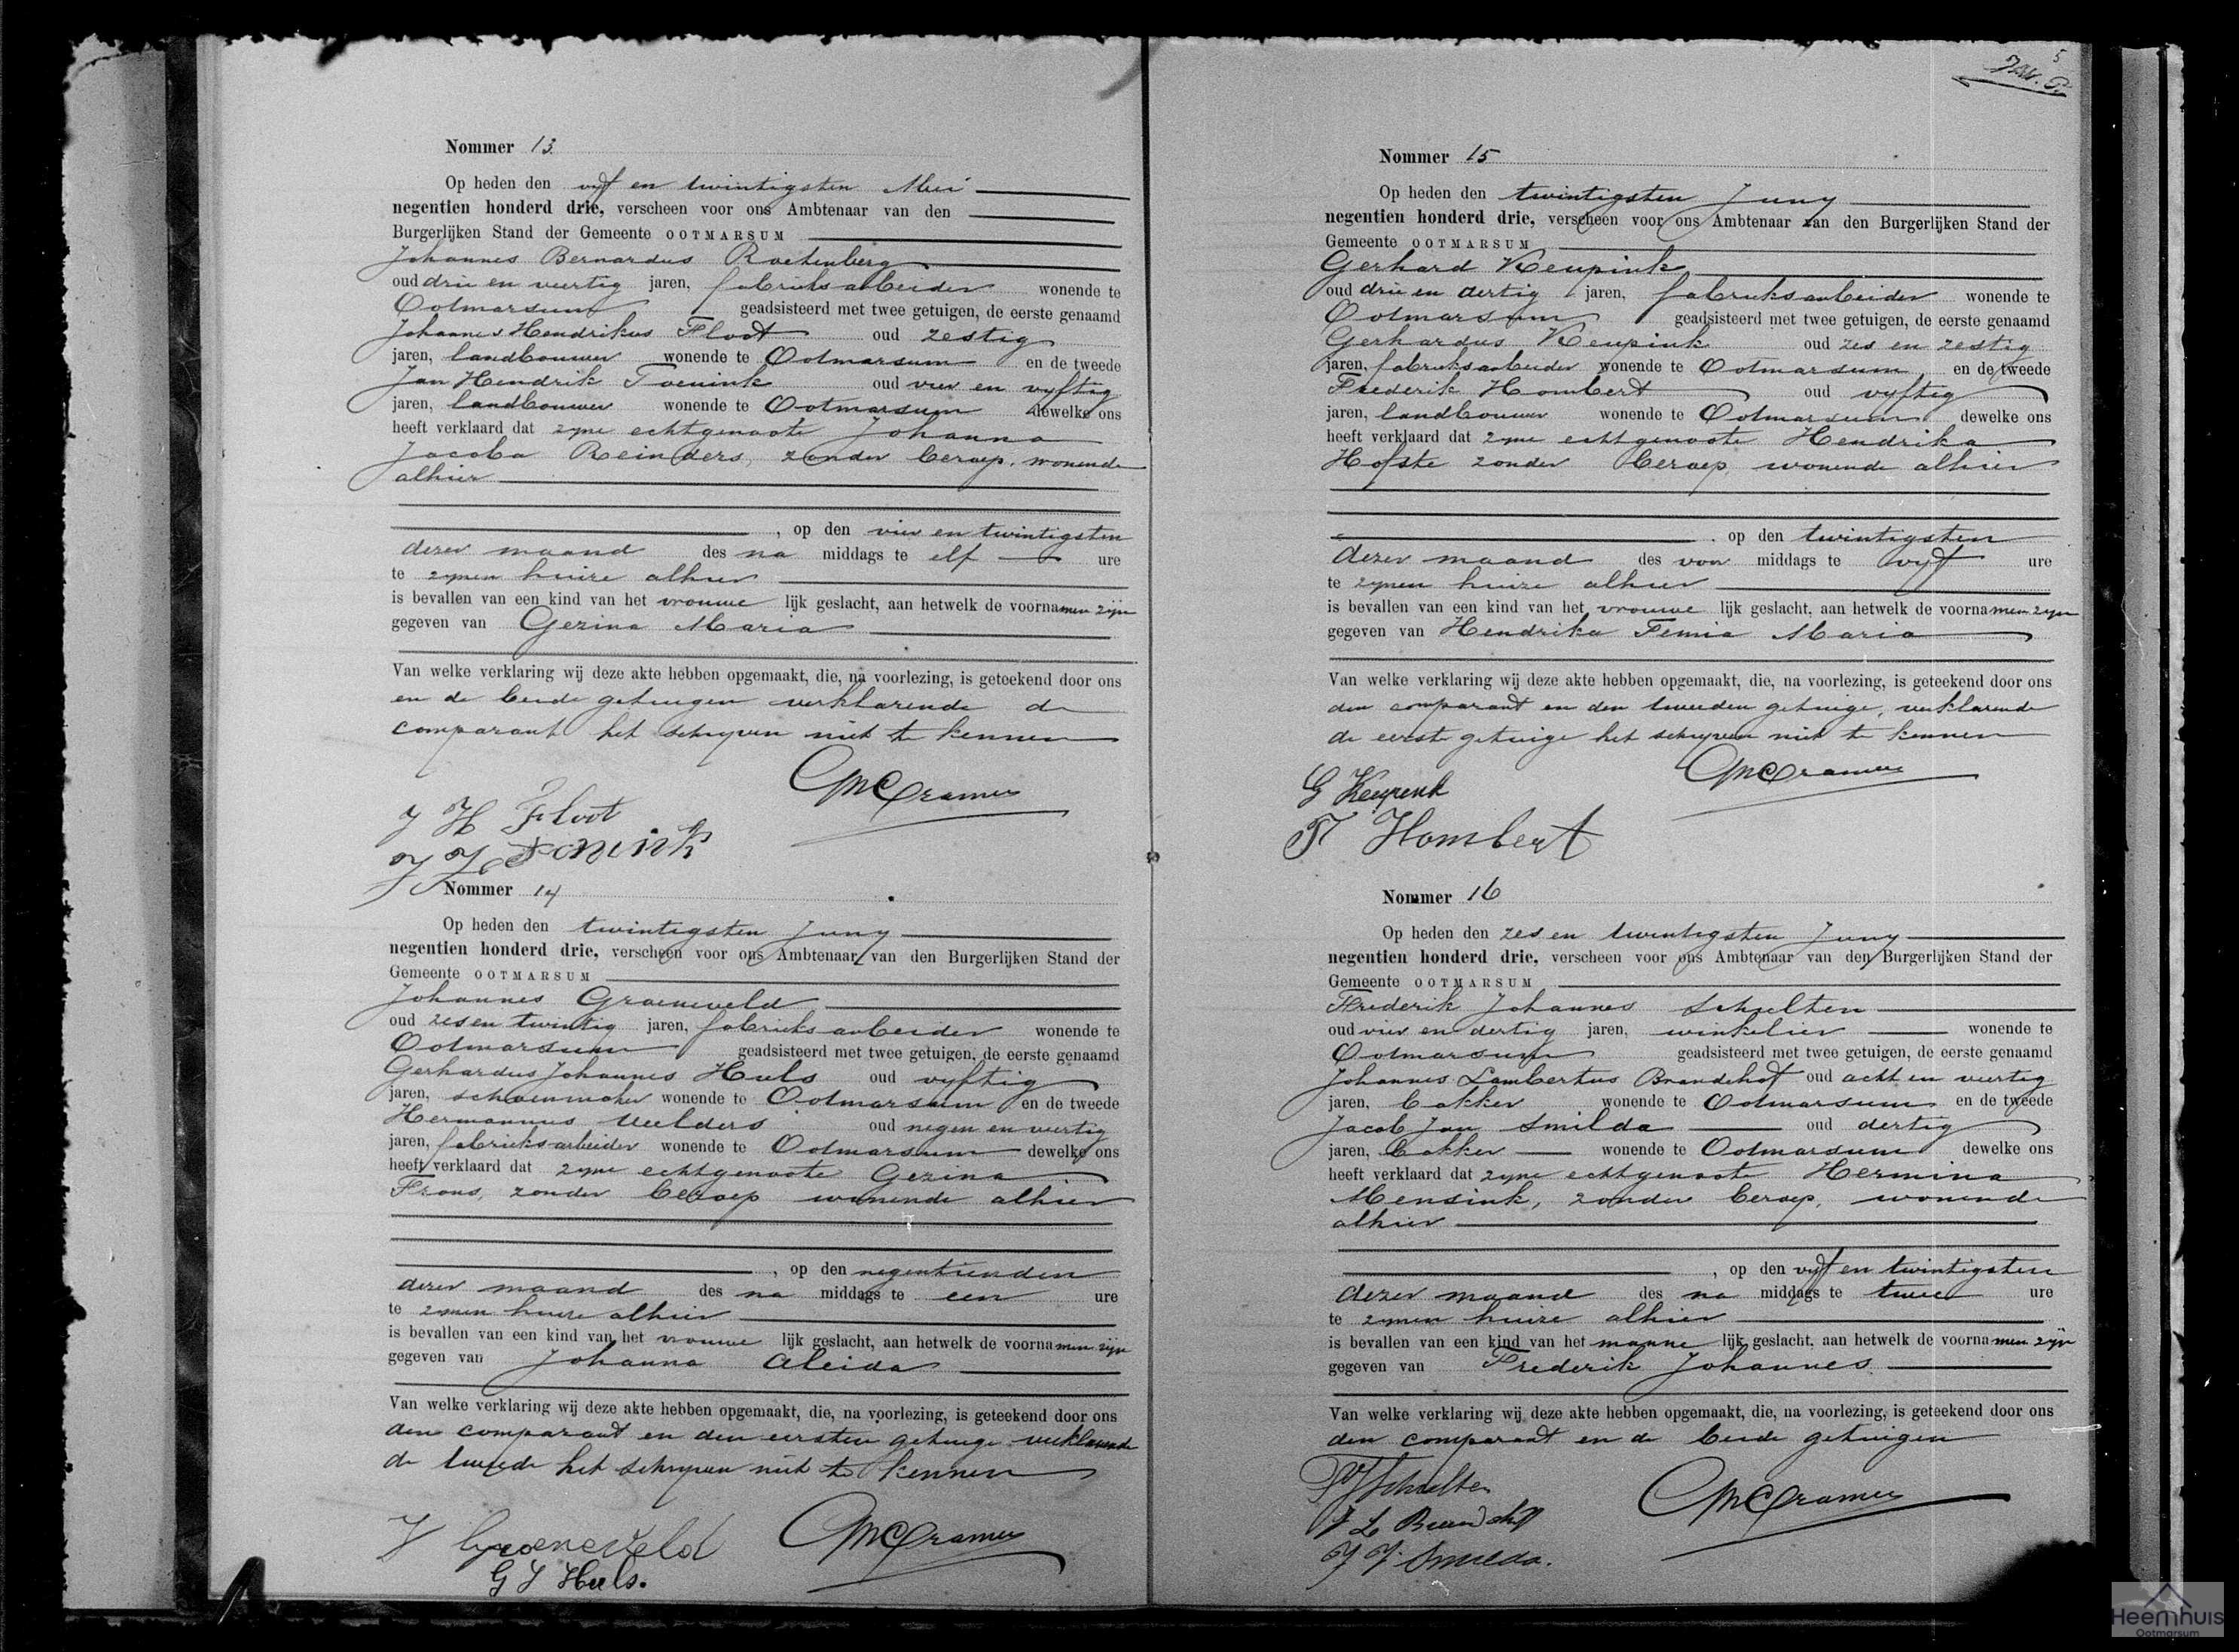 Nommer 13
Op heden den vyf en twintigsten Mei
negentien honderd drie, verscheen voor ons Ambtenaar van den
Burgerlijken Stand der Gemeente OOTMARSUM
Johannes Bernardus Roetenberg
oud drie en veertig jaren, fabrieksarbeider wonende te
Ootmarsum geadsisteerd met twee getuigen, de eerste genaamd
Johannes Hendrikus Floot oud zestig
jaren, landbouwer wonende te Ootmarsum en de tweede
Jan Hendrik oud vier en vyftig
jaren, landbouwer wonende te Ootmarsum dewelke ons
heeft verklaard dat zyne echtgenoote Johanna
Jacoba Reinders, zonder beroep, wonende
alhier
, op den vier en twintigsten
dezer maand des na middags te elf ure
te zynen huize alhier
is bevallen van een kind van het vrouwe lijk geslacht, aan hetwelk de voornamen zyn
gegeven van Gezina Maria
Van welke verklaring wij deze akte hebben opgemaakt, die, na voorlezing, is geteekend door ons
en de beide getuigen verklarende de
comparant het schryven niet te kennen
Cramer
J H Floot
Nommer 14
Op heden den twintigsten Juny
negentien honderd drie, verscheen voor ons Ambtenaar van den Burgerlijken Stand der
Gemeente OOTMARSUM
Johannes Groeneveld
oud zes en twintig jaren, fabrieksarbeider wonende te
Ootmarsum geadsisteerd met twee getuigen, de eerste genaamd
Gerhardus Johannes Huls oud vyftig
jaren, schoenmaker wonende te Ootmarsum en de tweede
Hermannus Meulders oud negen en veertig
jaren, fabrieksarbeider wonende te Ootmarsum dewelke ons
heeft verklaard dat zyne echtgenoote Gezina
Frons, zonder beroep wonende alhier
, op den negentienden
dezer maand des na middags te een ure
te zynen huize alhier
is bevallen van een kind van het vrouwe lijk geslacht, aan hetwelk de voornamen zyn
gegeven van Johanna Aleida
Van welke verklaring wij deze akte hebben opgemaakt, die, na voorlezing, is geteekend door ons
den comparant en den eersten getuige verklarende
de tweede het schryven niet te kennen
J Groeneveld Cramer
G J Huls.
5
Nommer 15
Op heden den twintigsten Juny
negentien honderd drie, verscheen voor ons Ambtenaar van den Burgerlijken Stand der
Gemeente OOTMARSUM
Gerhard Keupink
oud drie en dertig jaren, fabrieksarbeider wonende te
Ootmarsum geadsisteerd met twee getuigen, de eerste genaamd
Gerhardus Keupink oud zes en zestig
jaren, fabrieksarbeider wonende te Ootmarsum en de tweede
Frederik Hombert oud vyftig
jaren, landbouwer wonende te Ootmarsum dewelke ons
heeft verklaard dat zyne echtgenoote Hendrika
Hofste zonder beroep, wonende alhier
, op den twintigsten
dezer maand des voor middags te vyf ure
te zynen huize alhier
is bevallen van een kind van het vrouwe lijk geslacht, aan hetwelk de voornamen zyn
gegeven van Hendrika Femia Maria
Van welke verklaring wij deze akte hebben opgemaakt, die, na voorlezing, is geteekend door ons
den comparant en den tweeden getuige, verklarende
de eerste getuige het schryven niet te kennen
G Keupink Cramer
F Hombert
Nommer 16
Op heden den zes en twintigsten Juny
negentien honderd drie, verscheen voor ons Ambtenaar van den Burgerlijken Stand der
Gemeente OOTMARSUM
Frederik Johannes Schulten
oud vier en dertig jaren, winkelier wonende te
Ootmarsum geadsisteerd met twee getuigen, de eerste genaamd
Johannes Lambertus Brandehof oud acht en veertig
jaren, bakker wonende te Ootmarsum en de tweede
Jacob Jan Smilda oud dertig
jaren, bakker wonende te Ootmarsum dewelke ons
heeft verklaard dat zyne echtgenoote Hermina
Mensink, zonder beroep, wonende
alhier
, op den vyf en twintigsten
dezer maand des na middags te twee ure
te zynen huize alhier
is bevallen van een kind van het manne lijk geslacht, aan hetwelk de voornamen zyn
gegeven van Frederik Johannes
Van welke verklaring wij deze akte hebben opgemaakt, die, na voorlezing, is geteekend door ons
den comparant en de beide getuigen
FJSchulten Cramer
J L Brandehof
J J Smilda.
Heemhuis
Ootmarsum